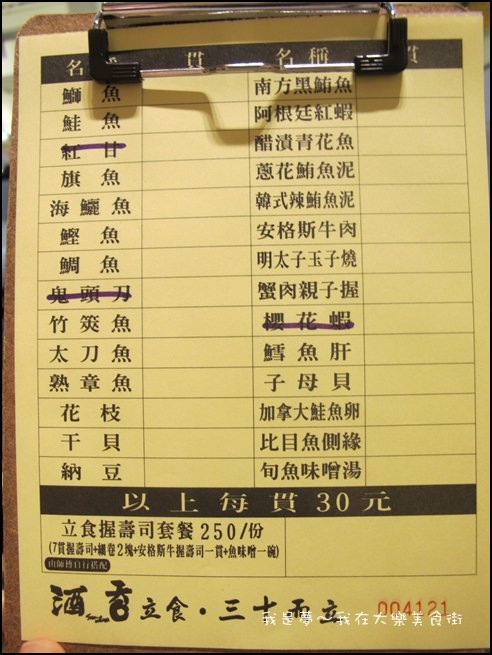 名 貫 名 稱 貫
鰤魚 南方黑鮪魚
鮭魚 阿根廷紅蝦
紅甘 醋漬青花魚
旗魚 蔥花鮪魚泥
海鱺魚 韓式辣鮪魚泥
鰹魚 安格斯牛肉
鯛魚 明太子玉子燒
鬼頭刀 蟹肉親子握
竹筴魚 櫻花蝦
太刀魚 鱈魚肝
熟章魚 子母貝
花枝 加拿大鮭魚卵
干貝 比目魚側緣
納豆 旬魚味噌湯
以上每貫30元
立食握壽司套餐 250/份
(7貫握壽司+細卷2塊+安格斯牛握壽司一貫+魚味噌一碗)
由師傅自行搭配
酒香立食·三十兩立
004121
我是夢~我在大樂美食街